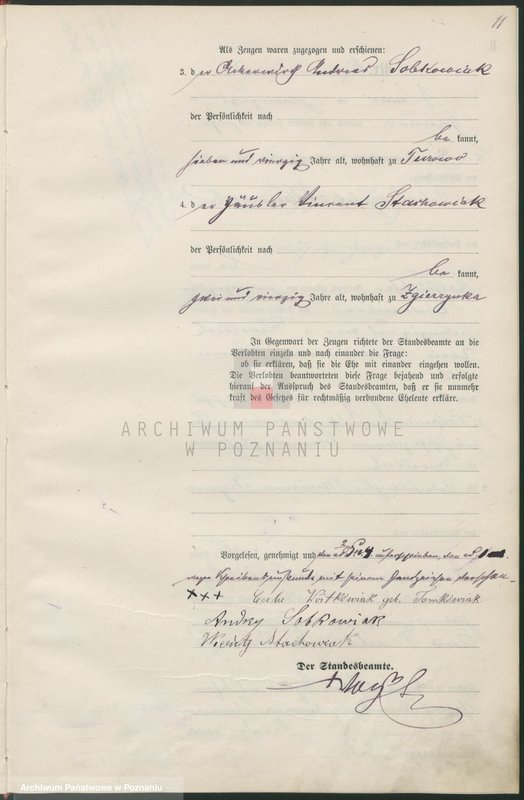 11
Als Zeugen waren zugezogen und erschienen:
3. der Ackerwirth Andreas Sobkowiak
der Persönlichkeit nach
be kannt,
sieben und vierzig Jahre alt, wohnhaft zu Turowo
4. der Häusler Vincent Stachowiak
der Persönlichkeit nach
be kannt,
zwei und vierzig Jahre alt, wohnhaft zu Zgierzynka
In Gegenwart der Zeugen richtete der Standesbeamte an die
Verlobten einzeln und nach einander die Frage:
ob sie erklären, daß sie die Ehe mit einander eingehen wollen.
Die Verlobten beantworteten diese Frage bejahend und erfolgte
hierauf der Ausspruch des Standesbeamten, daß er sie nunmehr
kraft des Gesetzes für rechtmäßig verbundene Eheleute erkläre.
ARCHIWUM PAŃSTWOWE
W POZNANIU
Vorgelesen, genehmigt und unterschrieben, von
wegen Schreibensunkunde mit seinem Handzeichen versehen
+++ Voitkowiak geb. Tomkowiak
Andrzy Sobkowiak
Stachowiak
Der Standesbeamte.
Archiwum Państwowe w Poznaniu